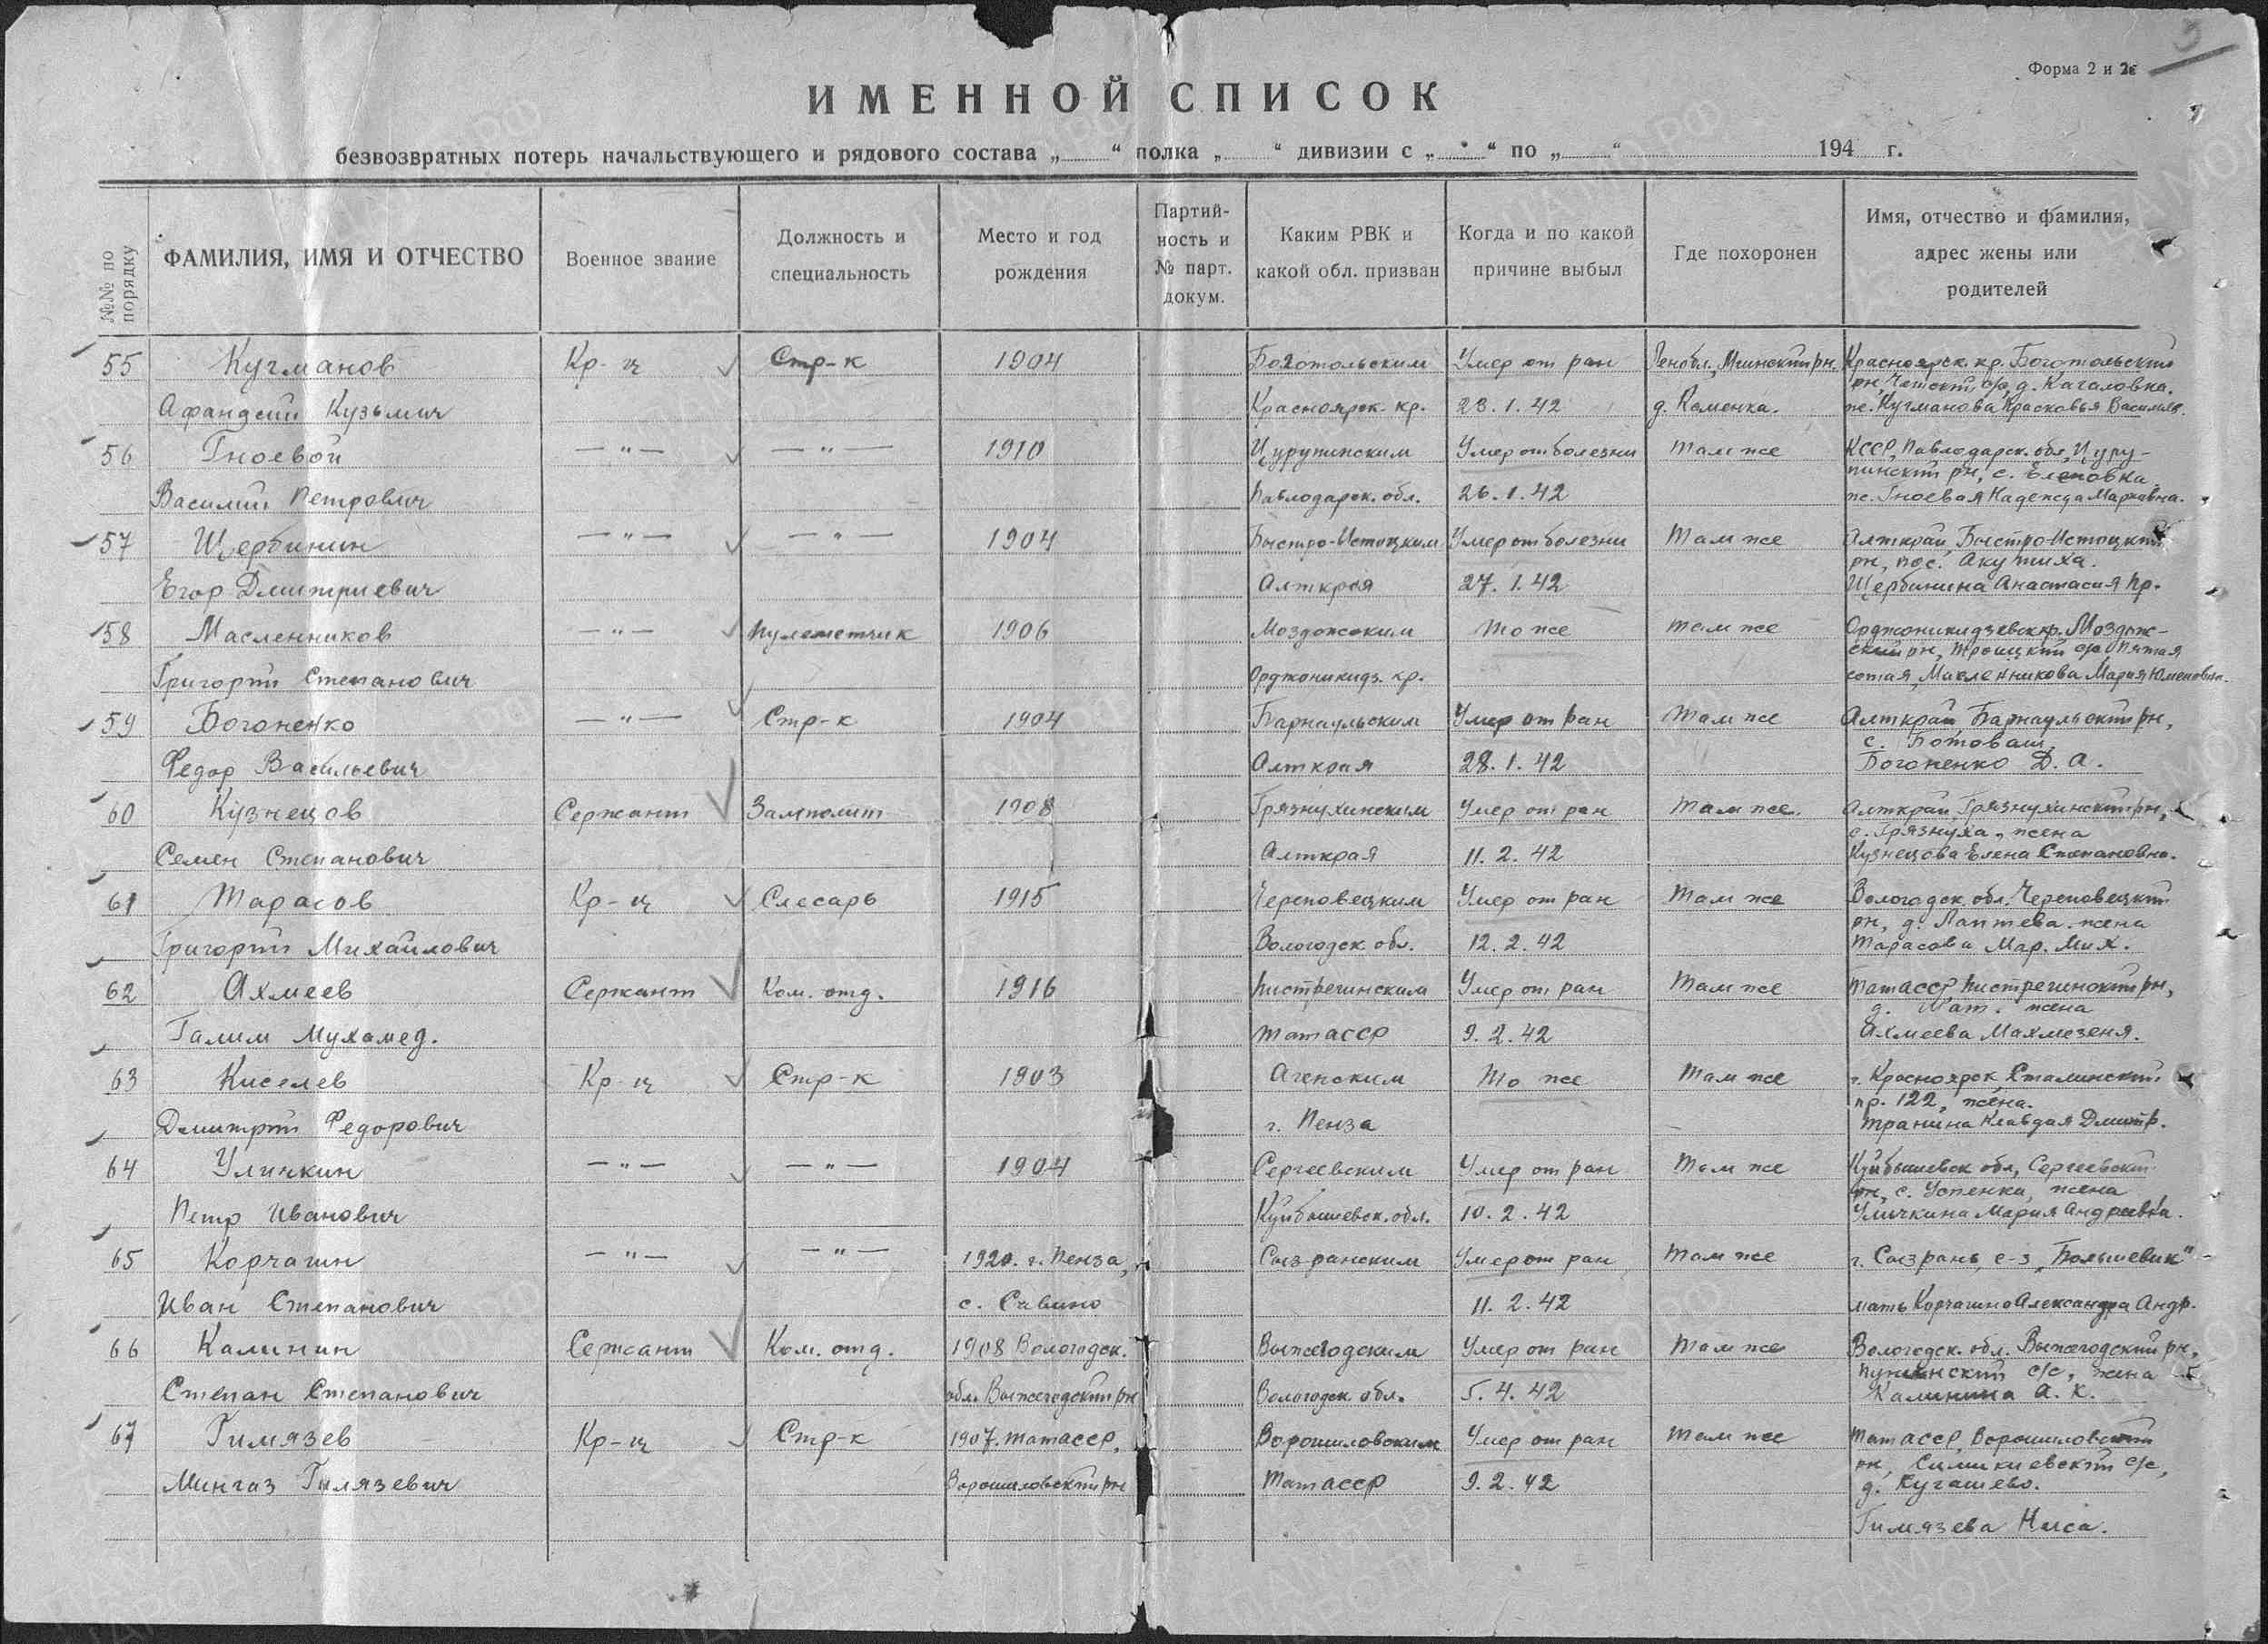 Форма 2 и 2а
ИМЕННОЙ СПИСОК
безвозвратных потерь начальствующего и рядового состава „ “ полка „ “ дивизии с „ “ по „ “ 194 г.
№№ по порядку
ФАМИЛИЯ, ИМЯ И ОТЧЕСТВО
Военное звание
Должность и специальность
Место и год рождения
Партийность и № парт. докум.
Каким РВК и какой обл. призван
Когда и по какой причине выбыл
Где похоронен
Имя, отчество и фамилия, адрес жены или родителей
55 Кугманов Кр-ц Стр-к 1904 Боготольским Умер от ран Ленобл., Мгинский рн. Красноярск. кр. Боготольский
рн, с/с, д. Качаловка.
Афанасий Кузьмич Красноярск. кр. 23.1.42 д. Каменка. же. Кугманова Прасковья Васильев.
56 Гноевой —"— —"— 1910 Цурупинским Умер от болезни Там же КССР, Павлодарск. обл, Цуру-
пинский рн, с. Еленовка
Василий Петрович Павлодарск. обл. 26.1.42 же. Гноевая Надежда Марковна.
57 Щербинин —"— —"— 1904 Быстро-Истоцким Умер от болезни Там же Алткрай, Быстро-Истоцкий
рн, пос. Акутиха.
Егор Дмитриевич Алткрая 27.1.42 Щербинина Анастасия Пр.
58 Масленников —"— Пулеметчик 1906 Моздокским То же Там же Орджоникидзевск кр. Моздок-
ский рн, Троицкий с/с Пятая
Григорий Степанович Орджоникидз. кр. сотая, Масленникова Мария
59 Богоненко —"— Стр-к 1904 Барнаульским Умер от ран Там же Алткрай, Барнаульский рн,
с.
Федор Васильевич Алткрая 28.1.42 Богоненко Д. А.
60 Кузнецов Сержант Замполит 1908 Грязнухинским Умер от ран Там же. Алткрай, Грязнухинский рн,
с. Грязнуха, жена
Семен Степанович Алткрая 11.2.42 Кузнецова Елена Степановна.
61 Тарасов Кр-ц Слесарь 1915 Череповецким Умер от ран Там же Вологодск. обл. Череповецкий
рн, д. Лаптева. жена
Григорий Михайлович Вологодск. обл. 12.2.42 Тарасова Мар. Мих.
62 Ахмеев Сержант Ком. отд. 1916 Пистречинским Умер от ран Там же ТатАССР Пистречинский рн,
д. жена
Галим Мухамед. ТатАССР 9.2.42 Ахмеева
63 Киселев Кр-ц Стр-к 1903 То же Там же г. Красноярск Сталинский
пр. 122, жена.
Дмитрий Федорович г. Пенза Транина Клавдия Дмитр.
64 Уличкин —"— —"— 1904 Сергеевским Умер от ран Там же Куйбышевск обл, Сергеевский
рн, с. Успенка, жена
Петр Иванович Куйбышевск. обл. 10.2.42 Уличкина Мария Андреевна.
65 Корчагин —"— —"— 1920. г. Пенза, Сызранским Умер от ран Там же г. Сызрань, с-з „Большевик"
Иван Степанович с. Савино 11.2.42 мать Корчагина Александра Андр.
66 Калинин Сержант Ком. отд. 1908 Вологодск. Вытегодским Умер от ран Там же Вологодск. обл. Вытегодский рн,
с/с, жена
Степан Степанович обл. Вытегодский рн Вологодск обл. 5.4.42 Калинина А. К.
67 Гимязев Кр-ц Стр-к 1907. ТатАССР, Ворошиловским Умер от ран Там же ТатАССР, Ворошиловский
рн, с/с,
Мингаз Гилязевич Ворошиловский рн ТатАССР 9.2.42 д. Кугашево.
Гимязева Ниса.